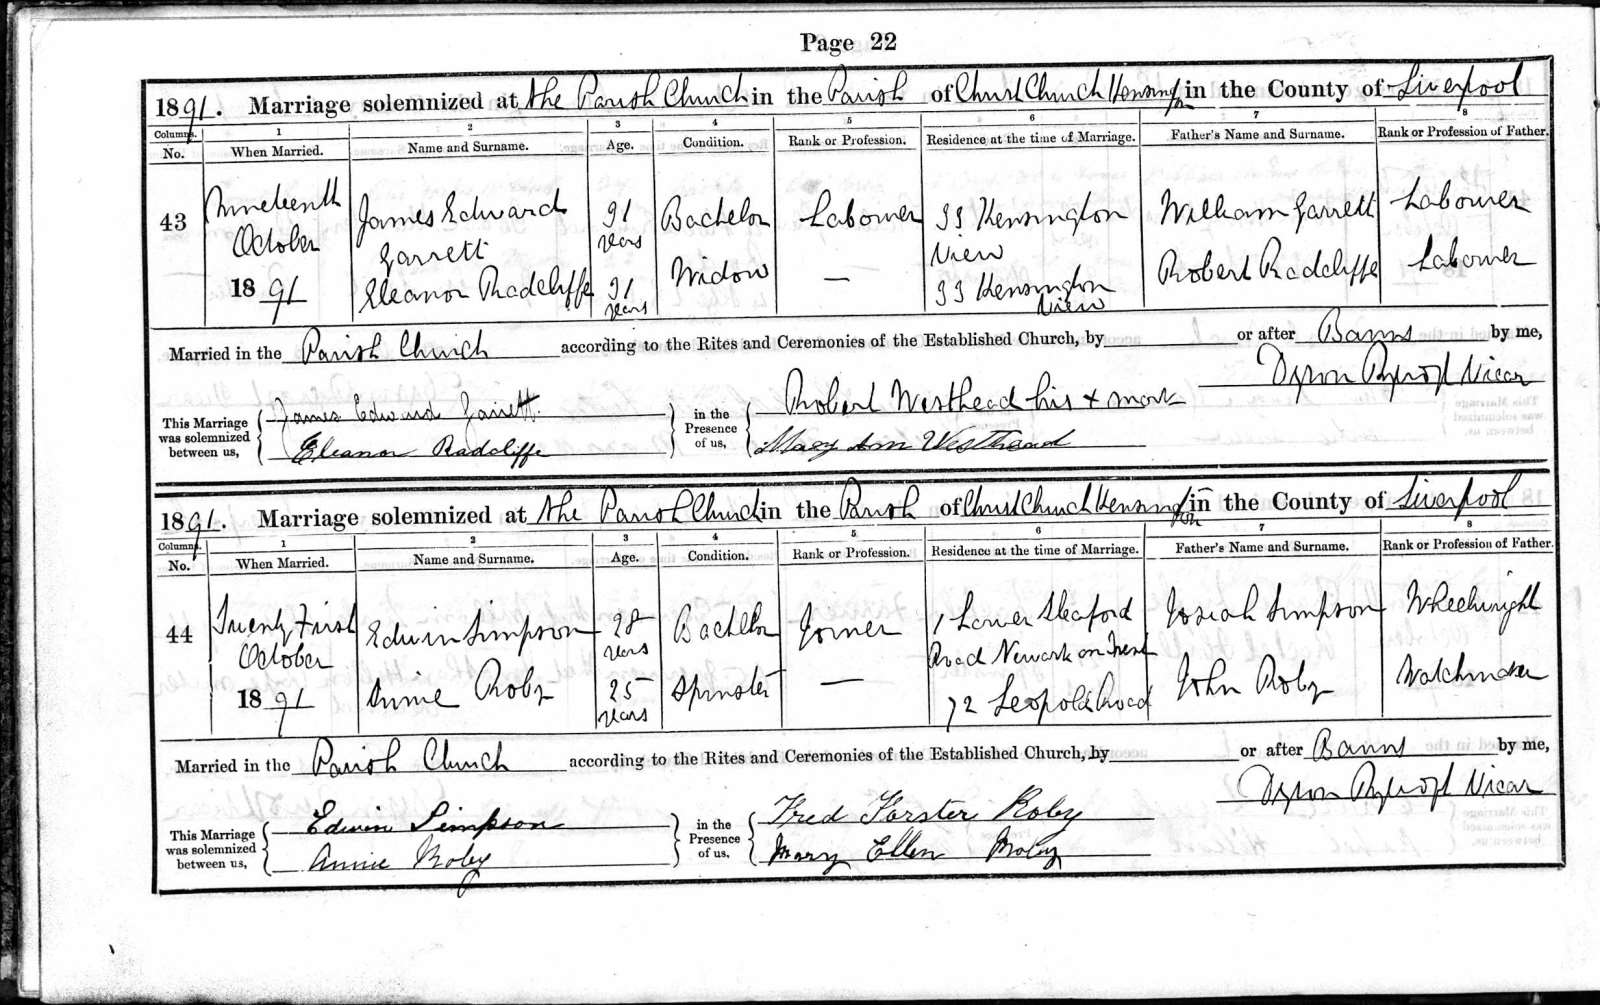 Page 22
1891. Marriage solemnized at the Parish Church in the Parish of Christ Church Kensington in the County of Liverpool
Columns. 1 2 3 4 5 6 7 8
No. When Married. Name and Surname. Age. Condition. Rank or Profession. Residence at the time of Marriage. Father's Name and Surname. Rank or Profession of Father.
43 Nineteenth October 1891 James Edward Garrett 31 years Bachelor Labourer 33 Kensington View William Garrett Labourer
Eleanor Radcliffe 31 years Widow — 33 Kensington View Robert Radcliffe Labourer
Married in the Parish Church according to the Rites and Ceremonies of the Established Church, by or after Banns by me,
Dyson Rycroft Vicar
This Marriage was solemnized between us, James Edward Garrett Eleanor Radcliffe in the Presence of us, Robert Westhead his x mark Mary Ann Westhead
1891. Marriage solemnized at the Parish Church in the Parish of Christ Church Kensington in the County of Liverpool
Columns. 1 2 3 4 5 6 7 8
No. When Married. Name and Surname. Age. Condition. Rank or Profession. Residence at the time of Marriage. Father's Name and Surname. Rank or Profession of Father.
44 Twenty First October 1891 Edwin Simpson 28 years Bachelor Joiner 1 Lower Sleaford Road Newark on Trent Josiah Simpson Wheelwright
Annie Roby 25 years Spinster — 72 Leopold Road John Roby Watchmaker
Married in the Parish Church according to the Rites and Ceremonies of the Established Church, by or after Banns by me,
Dyson Rycroft Vicar
This Marriage was solemnized between us, Edwin Simpson Annie Roby in the Presence of us, Fred Forster Roby Mary Ellen Roby